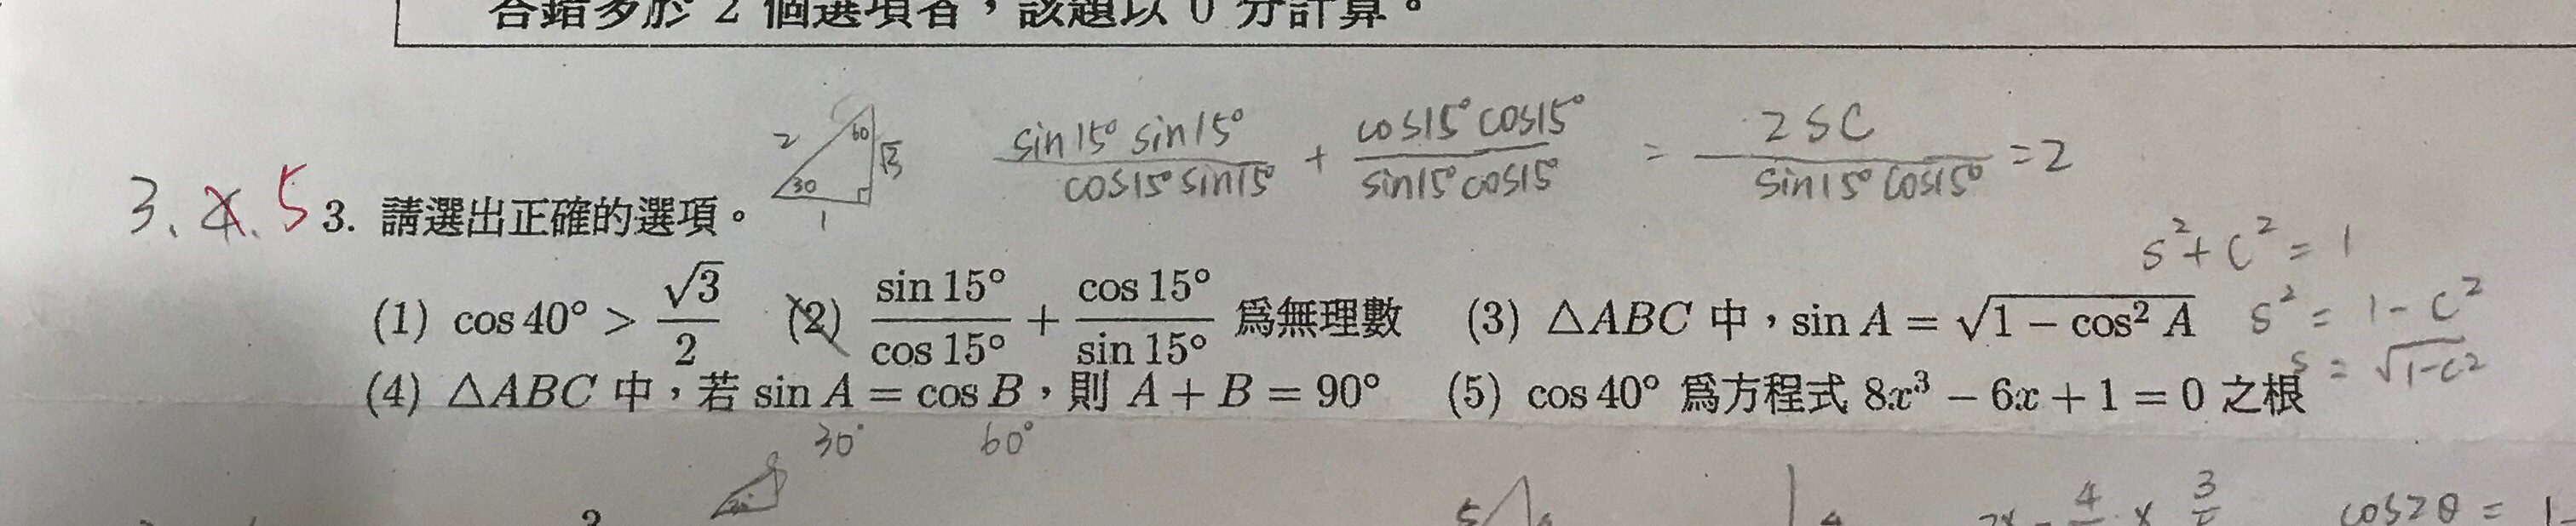 答錯多於 2 個選項者，該題以 0 分計算。
2 60 √3 30 1
sin15° sin15° / cos15° sin15° + cos15° cos15° / sin15° cos15° = 2SC / sin15° cos15° = 2
3. 4. 5
3. 請選出正確的選項。
S² + C² = 1
(1) cos 40° > √3/2 (2) sin 15°/cos 15° + cos 15°/sin 15° 爲無理數 (3) △ABC 中，sin A = √(1 − cos² A)
S² = 1 - C²
S = √(1-C²)
(4) △ABC 中，若 sin A = cos B，則 A + B = 90° (5) cos 40° 爲方程式 8x³ − 6x + 1 = 0 之根
30° 60°
cos2θ = 1